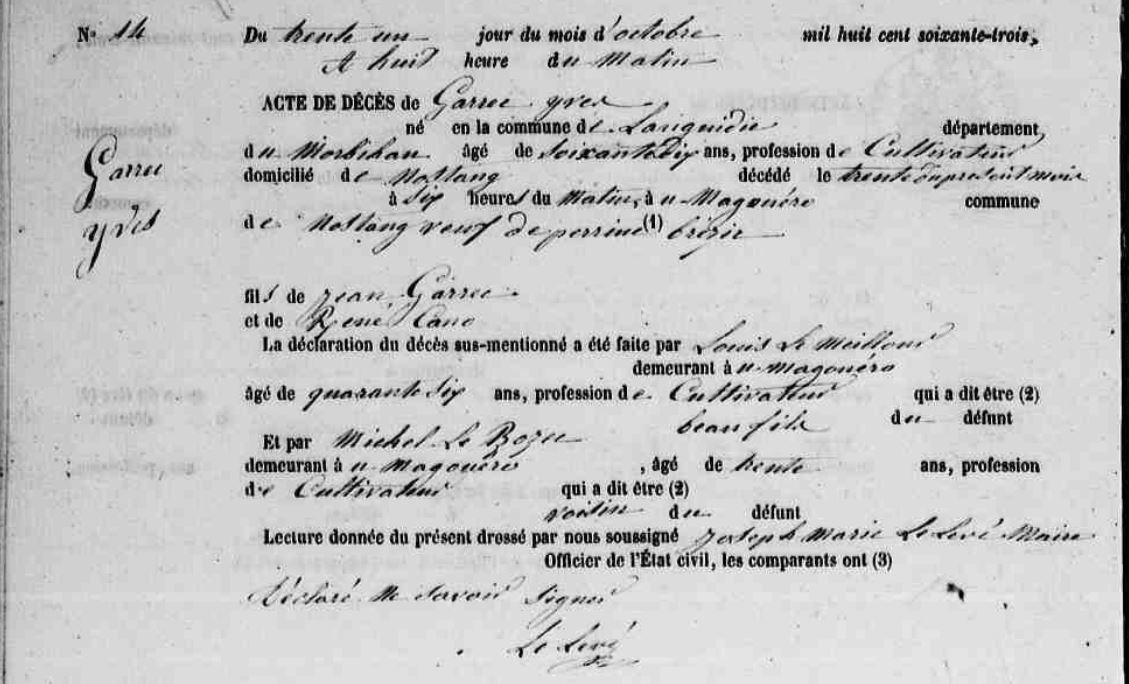 N° 14 Du trente un jour du mois d'octobre mil huit cent soixante-trois,
A huit heure du Matin
ACTE DE DÉCÈS de Garrec yves
né en la commune de Languidic département
du Morbihan âgé de soixante dix ans, profession de Cultivateur
domicilié de Nostang décédé le trente du present mois
à six heures du Matin, à u Magouéro commune
de Nostang veuf de perrine (1) brizic
Garrec
yves
fils de jean Garrec
et de René Cano
La déclaration du décès sus-mentionné a été faite par Louis Le Meillour
demeurant à u magouéro
âgé de quarante six ans, profession de Cultivateur qui a dit être (2)
beau fils du défunt
Et par Michel Le Bozec
demeurant à u Magouéro , âgé de trente ans, profession
de Cultivateur qui a dit être (2)
voisin du défunt
Lecture donnée du présent dressé par nous soussigné joseph Marie Le Levé Maire
Officier de l'État civil, les comparants ont (3)
déclaré ne savoir signer
Le Levé